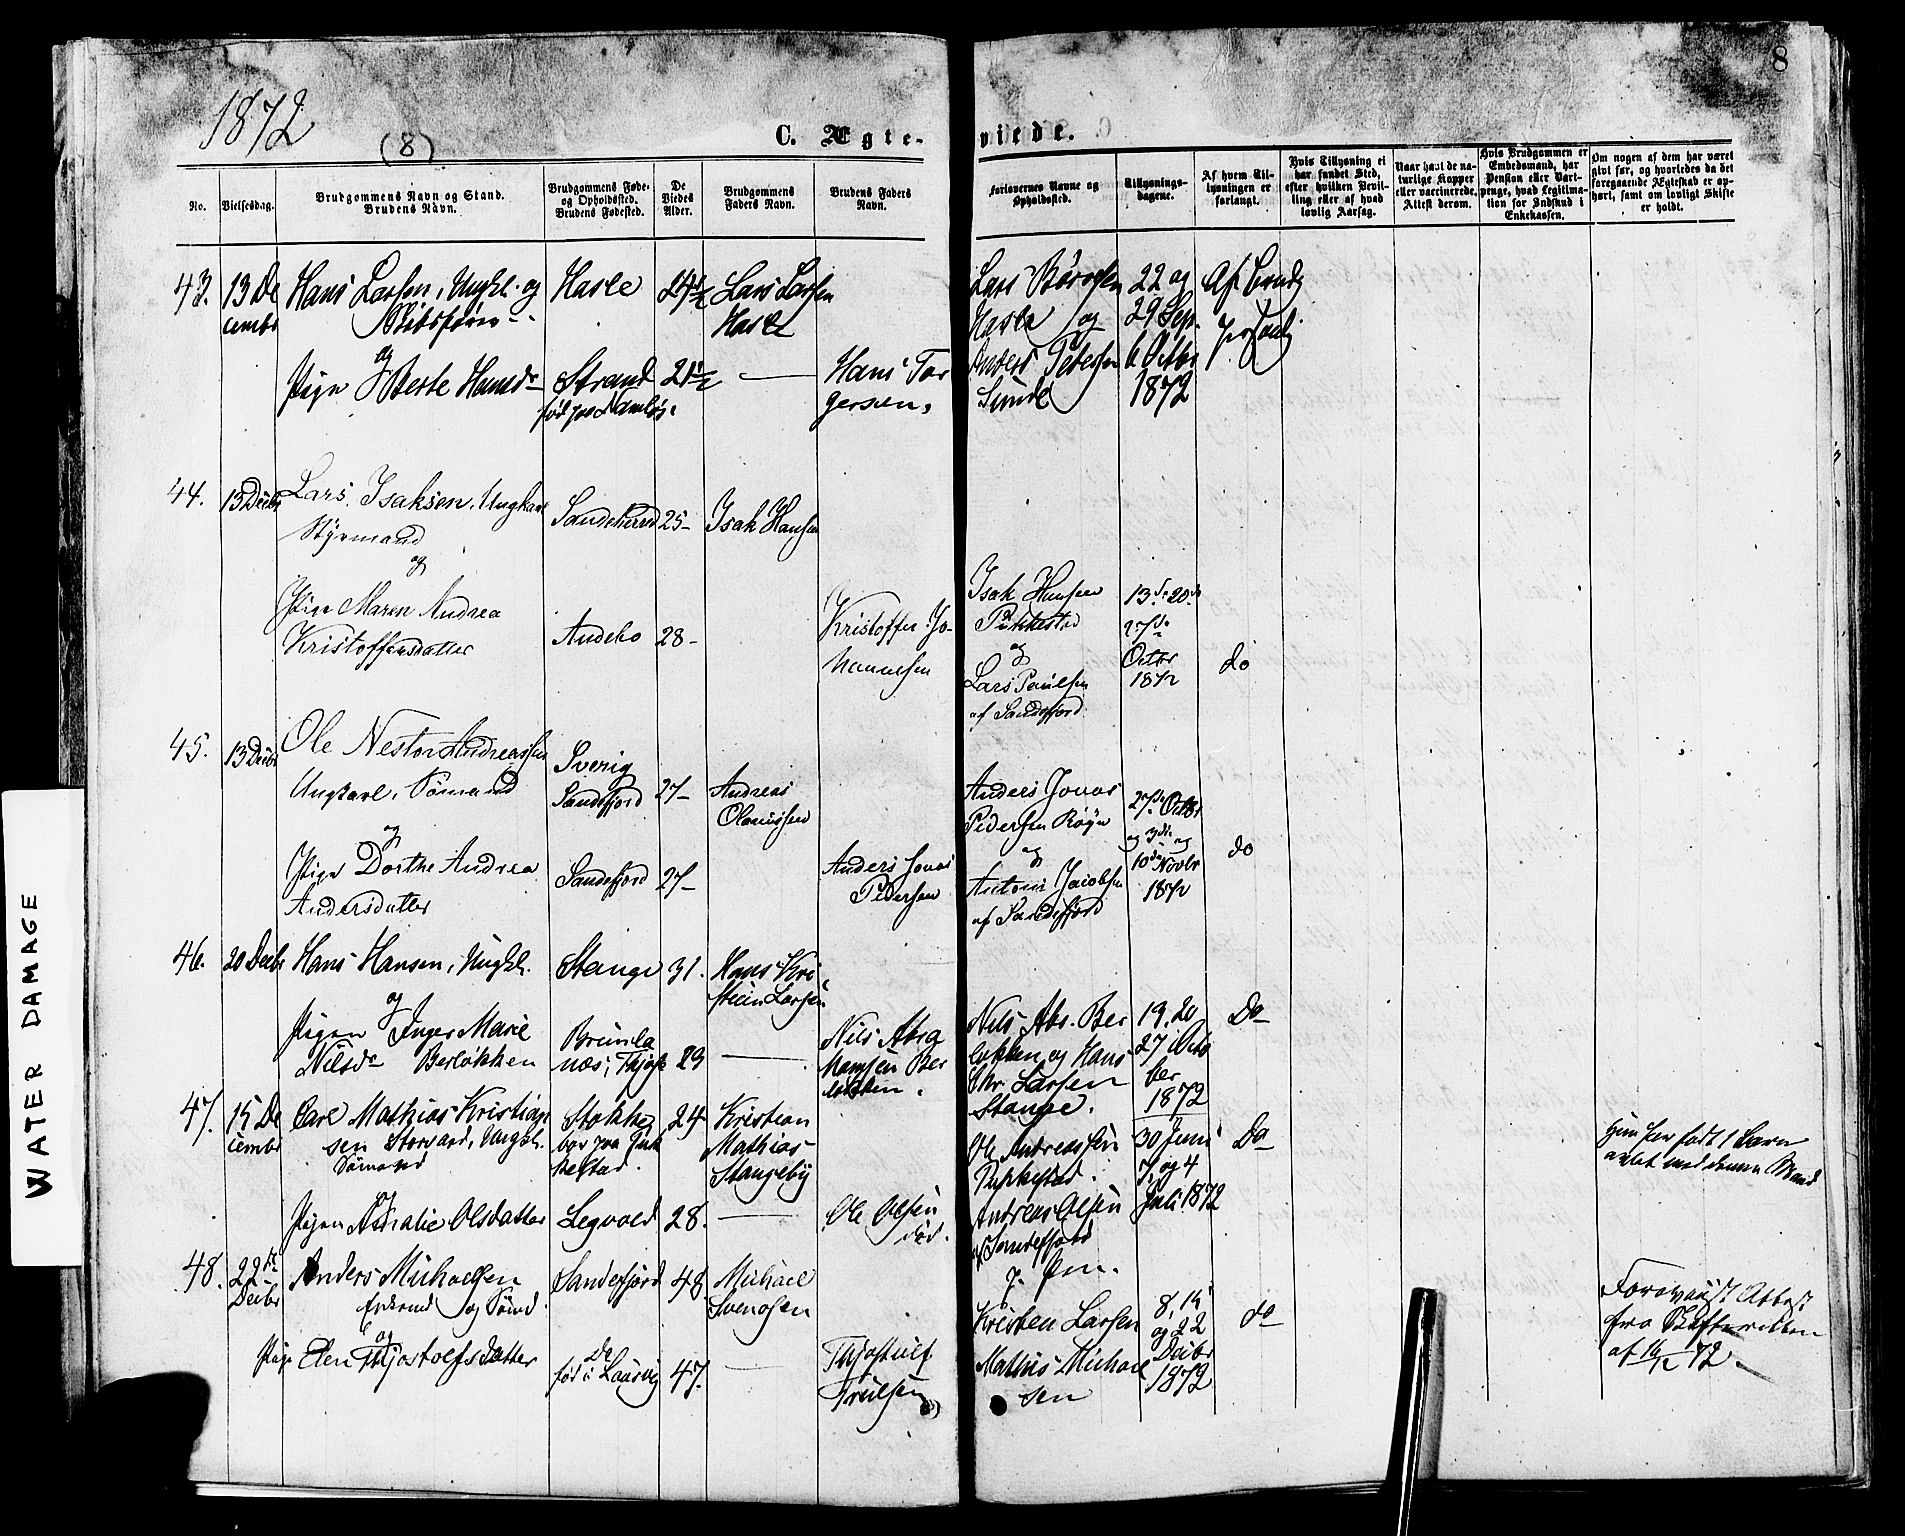 8
1872
(8)
C. Ægte-
viede.
No.
Vielsesdag.
Brudgommens Navn og Stand.
Brudens Navn.
Brudgommens Føde-
og Opholdssted.
Brudens Fødested.
De
Viedes
Alder.
Brudgommens
Faders Navn.
Brudens Faders
Navn.
Forlovernes Navne og
Opholdssted.
Tillysnings-
dagene.
Af hvem Til-
lysningen er
forlangt.
Hvis Tillysning ei
har fundet Sted,
efter hvilken Bevil-
ling eller af hvad
lovlig Aarsag.
Naar havt de na-
turlige Kopper
eller vaccinerede.
Attest derom.
Hvis Brudgommen er
Embedsmand, har
Pension eller Vart-
penge, hvad Legitima-
tion for Indskud i
Enkekassen.
Om nogen af dem har været
givt før, og hvorledes da det
foregaaende Ægteskab er op-
hørt, samt om lovligt Skifte
er holdt.
43.
13 De
cembr
Hans Larsen, Ungkl. og
og
Pige Berte Hansdr
Hasle
Strand
24½
21½
Lars Larsen
Hasle
Hans Tor
gersen.
Hasle og
Anders Petersen
Sunde
22 og
29 Sep.
6 Octbr
1872
44.
13 Decbr
Lars Isaksen, Ungkarl
Styrmand
og
Pige Maren Andrea
Kristoffersdatter
Sandeherred
Andebo
25
28
Isak Hansen
Kristoffer Jo-
hannesen
Isak Hansen
Pukkestad
og
Lars Paulsen
af Sandefjord
13de 20de
27de
Octbr
1872
do
45.
13 Decbr
Ole Nestor Andreassen
Ungkarl, Sømand
og
Pige Dorthe Andrea
Andersdatter
Sverig
Sandefjord
Sandefjord
27
27
Andreas
Anders Jonas
Pedersen
Anders Jonas
Pedersen
og
Anton Jacobsen
af Sandefjord
27de Octbr
og 3die og
10de Novbr
1872
do
46.
20 Decbr
Hans Hansen, Ungkl.
og
Pigen Inger Marie
Nilsdr Berløkken
Stange
31.
29
Hans Kri
stian Larsen
Nils Abra
hamsen Ber
løkken.
Nils Abr. Ber
løkken og Hans
Chr. Larsen
Stange.
13, 20
27 Octo
ber
1872
Do
47.
15 De
cembr
Carl Mathias Kristian
sen Storgaard, Ungkl.
Sømand
og
Pigen Amalie Olsdatter
Stokke
24
28.
Kristian
Mathias
Stangeby
Ole Olsen
død.
Ole Andreassen
Pukkestad.
Andreas Olsen
Sandefjord
30 Juni
7, og 4
Juli 1872
Do
Hun har født 1 Barn
avlet med denne Mand
48.
22de
Decbr
Anders Michaelsen
Enkemd og Sømd.
og
Pige Elen Thjostolfsdatter
Sandefjord
Do
født i Laurvig
48
47.
Michael
Svensen
Thjostulf
Trulsen
Kristen Larsen
Mathis Michael
sen
8, 15
og 22
Decbr
1872
do
Forevaist Attest
fra Skifteretten
af 14/12 72.
WATER DAMAGE